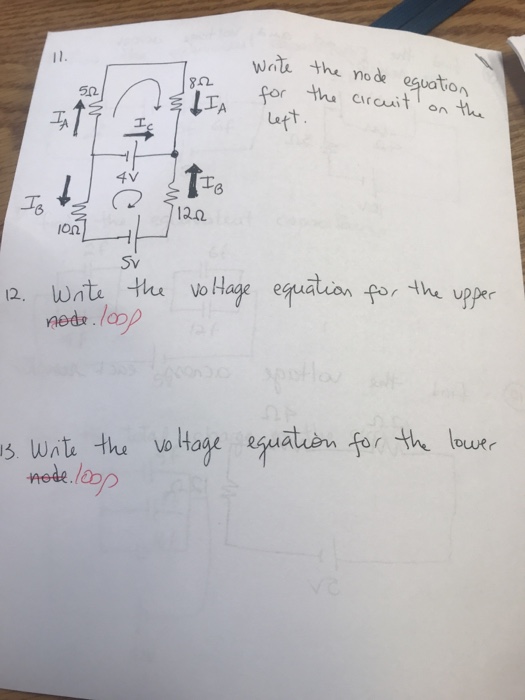 11.
Write the node equation
for the circuit on the
left.
5Ω
8Ω
I_A
I_A
I_c
4V
I_B
I_B
10Ω
12Ω
5v
12. Write the voltage equation for the upper
node. loop
13. Write the voltage equation for the lower
node. loop